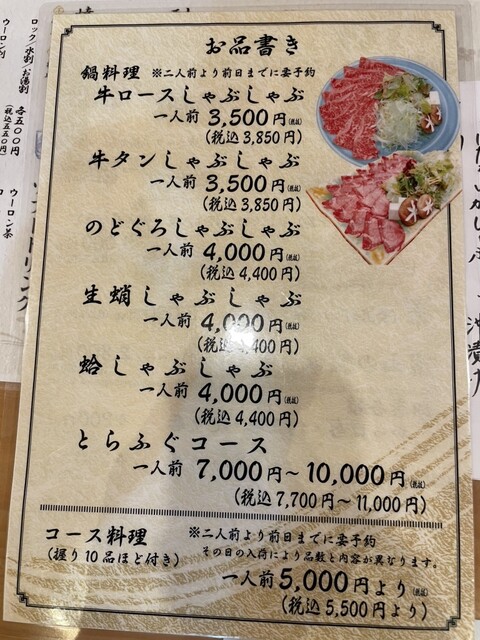 お品書き
鍋料理 ※二人前より前日までに要予約
牛ロースしゃぶしゃぶ
一人前 3,500円(税抜)
(税込3,850円)
牛タンしゃぶしゃぶ
一人前 3,500円(税抜)
(税込3,850円)
のどぐろしゃぶしゃぶ
一人前 4,000円(税抜)
(税込4,400円)
生蛸しゃぶしゃぶ
一人前 4,000円(税抜)
(税込4,400円)
蛤しゃぶしゃぶ
一人前 4,000円(税抜)
(税込4,400円)
とらふぐコース
一人前 7,000円〜10,000円(税抜)
(税込7,700円〜11,000円)
コース料理 ※二人前より前日までに要予約
(握り10品ほど付き) その日の入荷により品数と内容が異なります。
一人前5,000円より(税抜)
(税込5,500円より)
ロック/水割/お湯割
各五〇〇円
(税込五五〇円)
ウーロン割
ウーロン茶
ソフトドリンク